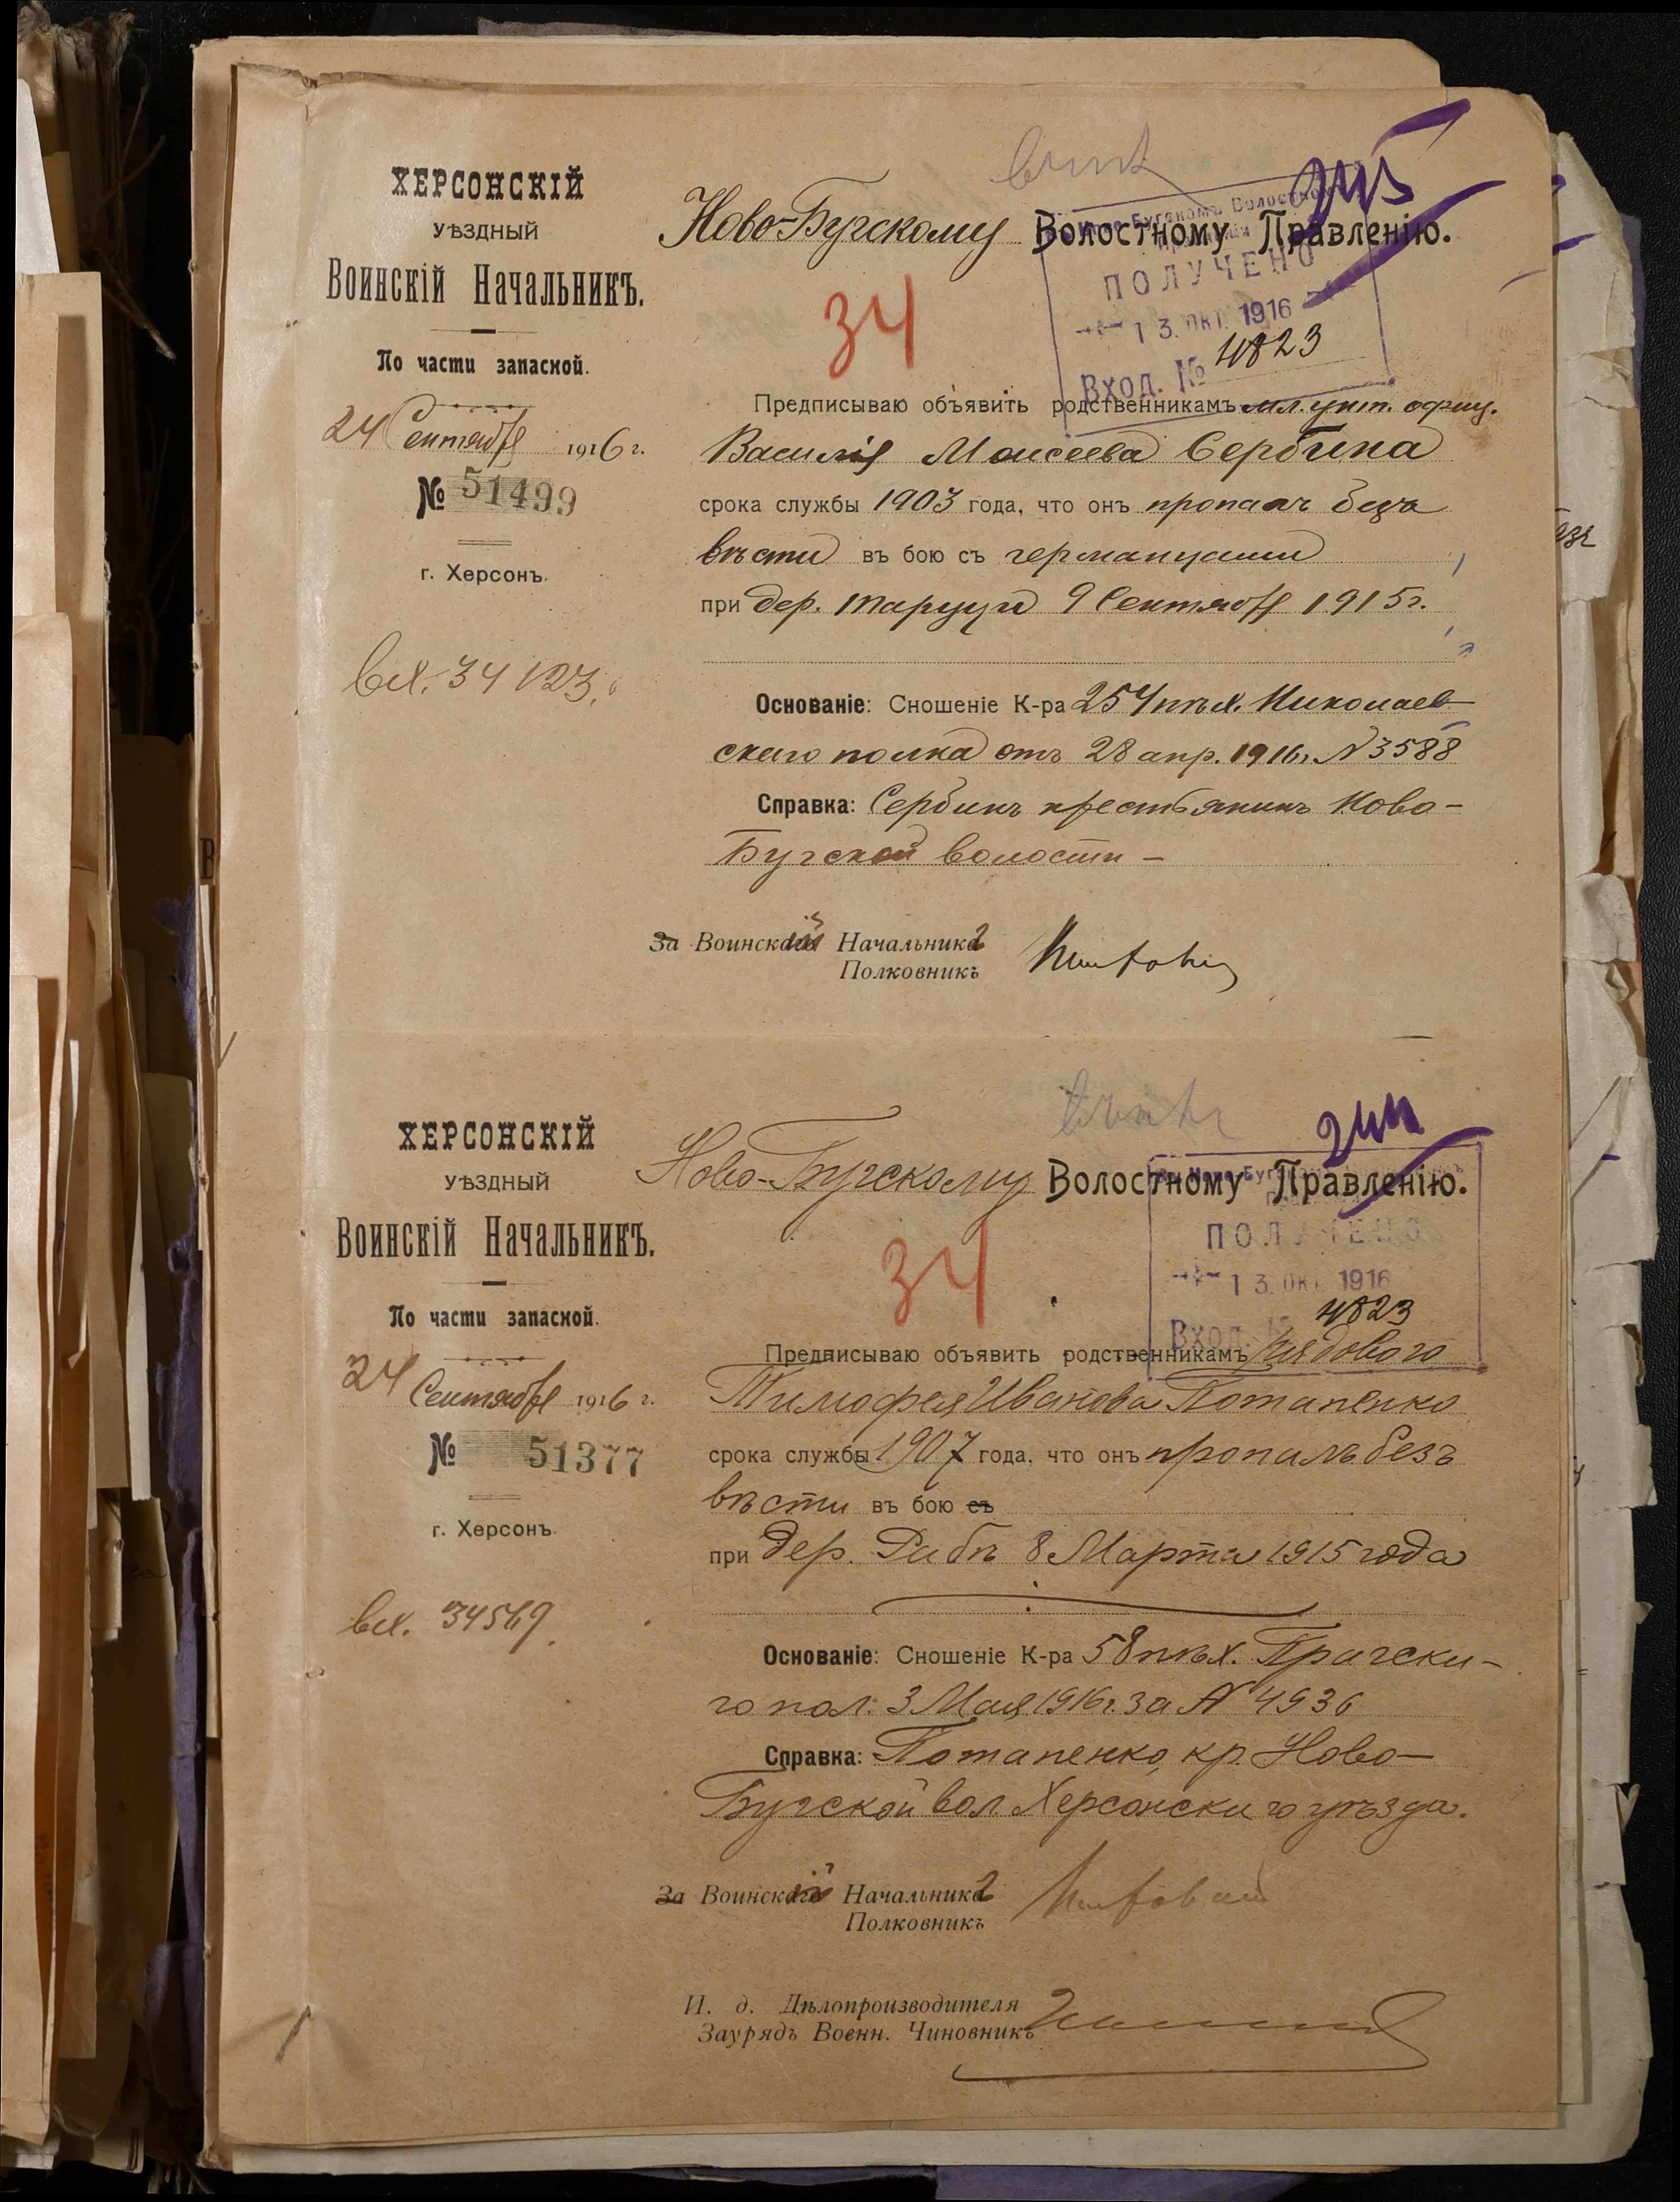 ХЕРСОНСКІЙ
УѢЗДНЫЙ
ВОИНСКІЙ НАЧАЛЬНИКЪ.
По части запасной.
24 Сентября 1916 г.
№ 51499
г. Херсонъ.
вх. 34123.
245
Ново-Бугскому Волостному Правленію.
Ново-Бугскомъ Волостномъ
ПОЛУЧЕНО
13. ОКТ. 1916
Вход. № 4823
34
Предписываю объявить родственникамъ мл. унт. офиц.
Василія Моисеева Сербина
срока службы 1903 года, что онъ пропалъ безъ
вѣсти въ бою съ германцами
при дер. 9 Сентября 1915 г.
Основаніе: Сношеніе К-ра 254 пѣх. Николаев-
скаго полка отъ 28 апр. 1916 г. № 3588
Справка: Сербинъ крестьянинъ Ново-
Бугской волости –
За Воинскій Начальникъ
Полковникъ
ХЕРСОНСКІЙ
УѢЗДНЫЙ
ВОИНСКІЙ НАЧАЛЬНИКЪ.
По части запасной.
24 Сентября 1916 г.
№ 51377
г. Херсонъ.
вх. 34569.
244
Ново-Бугскому Волостному Правленію.
ПОЛУЧЕНО
13. ОКТ. 1916
Вход. № 4823
34
Предписываю объявить родственникамъ рядового
Тимофея Иванова Потапенко
срока службы 1907 года, что онъ пропалъ безъ
вѣсти въ бою съ
при дер. 8 Марта 1915 года
Основаніе: Сношеніе К-ра 58 пѣх. Прагска-
го пол. 3 Мая 1916 г. за № 4936
Справка: Потапенко, кр. Ново-
Бугской вол. Херсонскаго уѣзда.
За Воинскій Начальникъ
Полковникъ
И. д. Дѣлопроизводителя
Заурядъ Военн. Чиновникъ